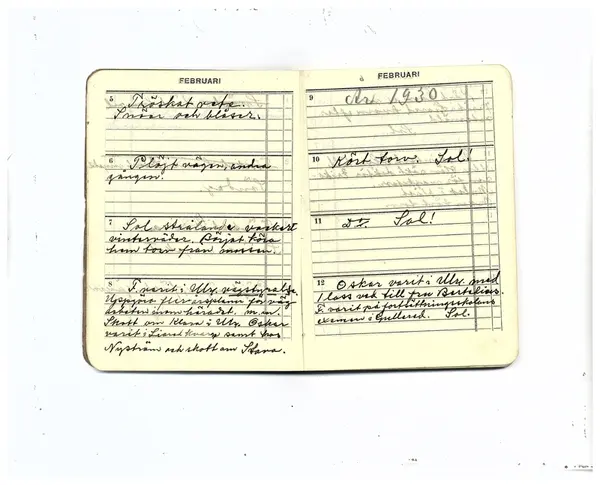 FEBRUARI
5
Tröskat vete.
Snöar och blåser.
6
Plöjt vägen, andra
gången.
7
Sol strålande vackert
vinterväder. Börjat köra
hem torv från mossen.
8
T. varit i Ulr. vägstyrelse.
för väg
arbeten inom häradet. m.m.
Skott om Klara i Ulr. Oskar
varit i samt hos
Nyström och skott om Stava.
FEBRUARI
9
År 1930
10
Kört torv Sol!
11
Do. Sol!
12
Oskar varit i Ulr. med
1 lass ved till fru Bertelius.
T. varit på fortsättningsskolans
examen i Gullered. Sol.